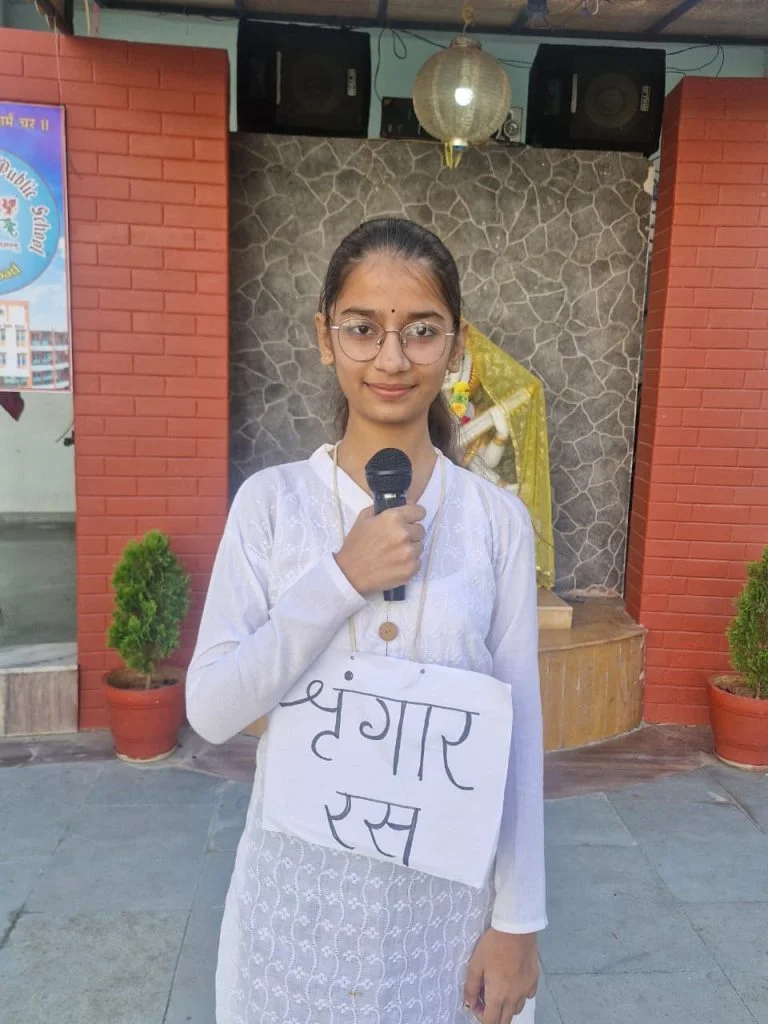 र्मं चर ॥
Public School
bad
शृंगार
रस